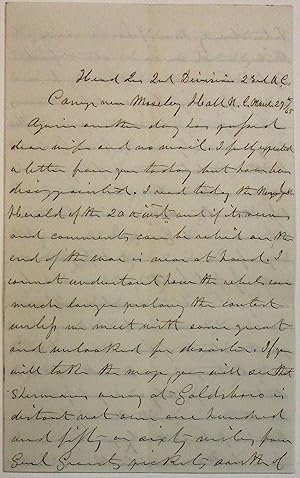 Head Qrs 2nd Division 23rd A.C.
Camp near Moseley Hall N.C. March 29th /65
Again another day has passed
dear wife and no mail. I fully expected
a letter from you today but have been
disappointed. I read today the New York
Herald of the 20th inst and if its news
and comments can be relied on the
end of the war is near at hand. I
cannot understand how the rebels can
much longer prolong the contest
unless we meet with some great
and unlooked for disaster. If you
will take the map you will see that
Shermans army at Goldsboro is
distant not over one hundred
and fifty or sixty miles from
Genl Grants pickets south of